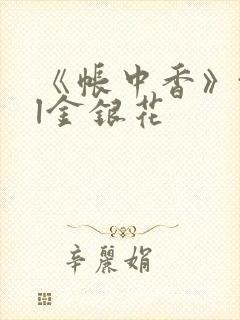 《帐中香》
l金银花
辛丽娟